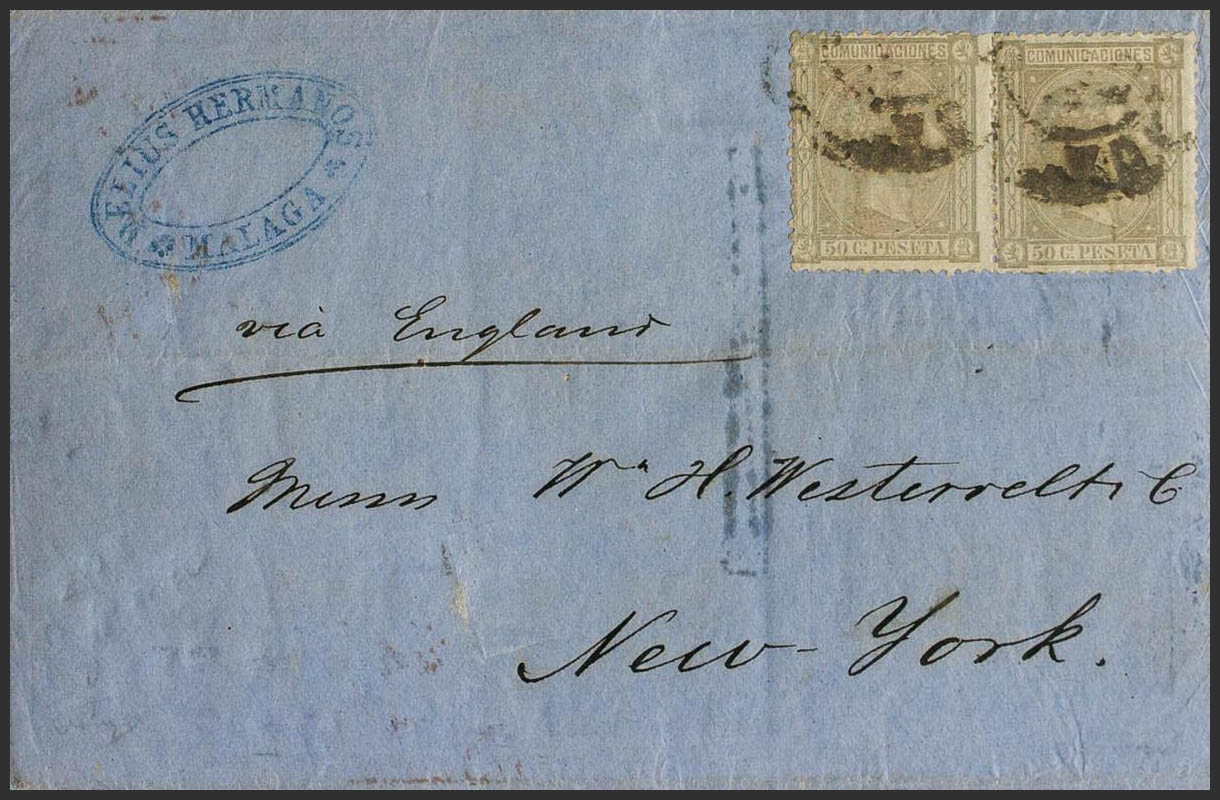 COMUNICACIONES
50 C. PESETA
COMUNICACIONES
50 C. PESETA
DELIUS HERMANOS
MALAGA
viâ England
Messrs Wm H. Westervelt & C
New-York.